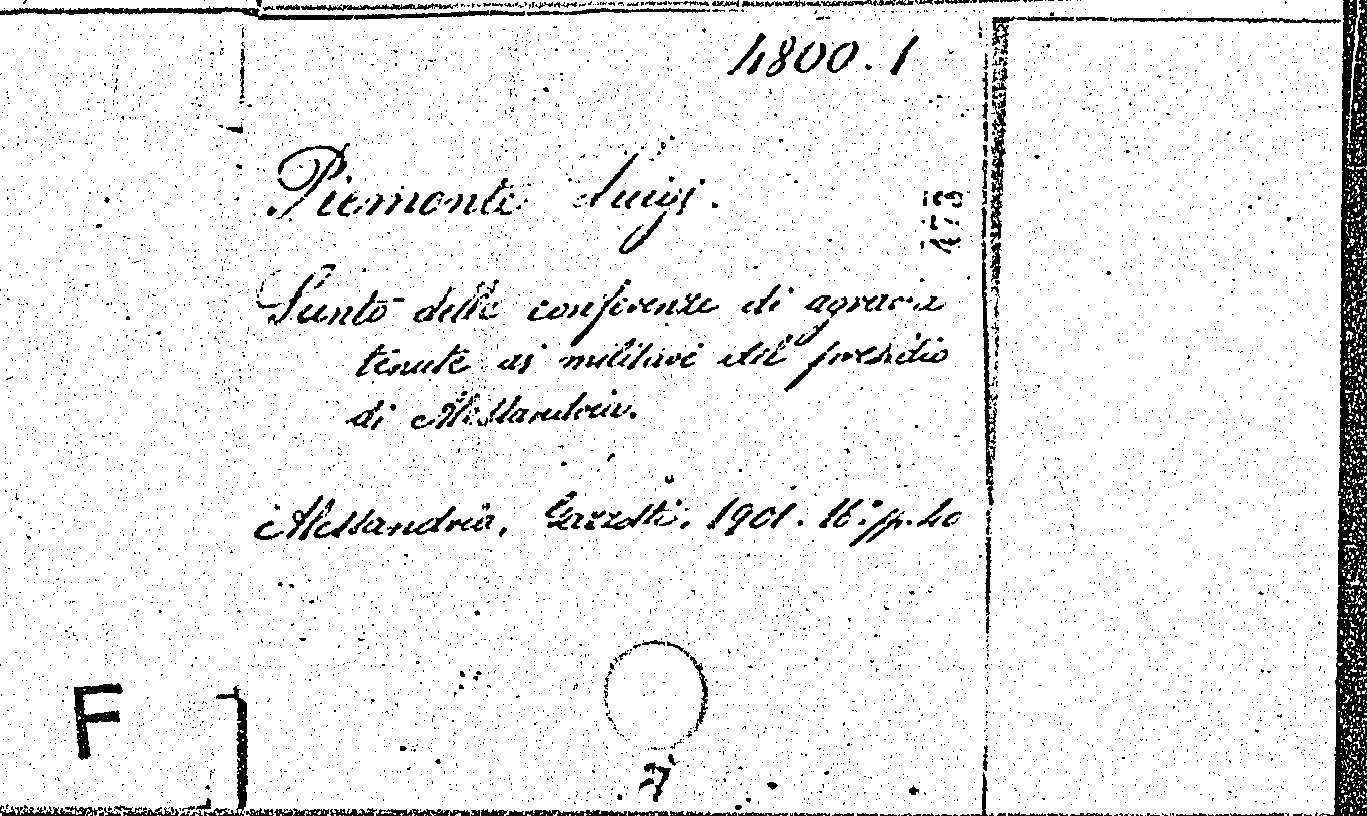 4800.1
Piemonte Luigi.
478
Sunto delle conferenze di agraria
tenute ai militari del presidio
di Alessandria.
Alessandria, Gazzotti, 1901. 16° p. 40
F
7